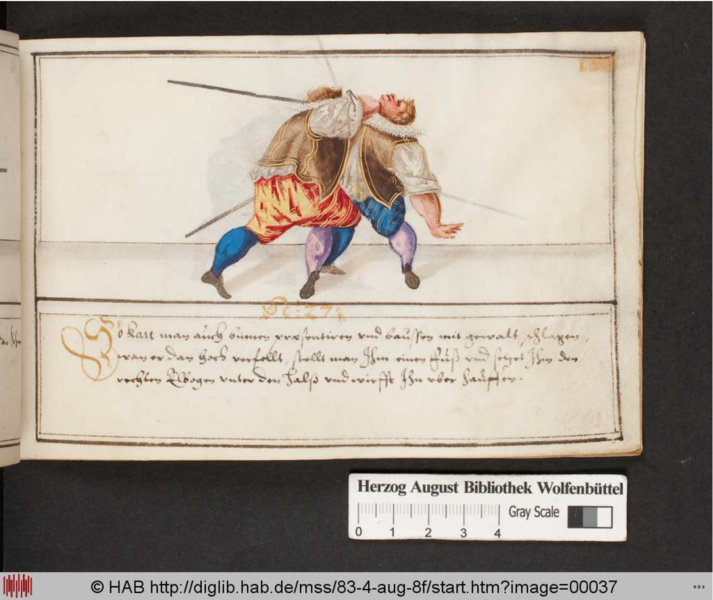 N: 27
So kan man auch binnen præsentiren vnd baussen mit gewalt schlagen,
wan er dan hoch verfellt, stellt man Ihm einen fuß vnd setzet Ihm den
rechten Elbogen vnter den halß vnd wirfft Ihn vber hauffen.
Herzog August Bibliothek Wolfenbüttel
0 1 2 3 4
Gray Scale
© HAB http://diglib.hab.de/mss/83-4-aug-8f/start.htm?image=00037